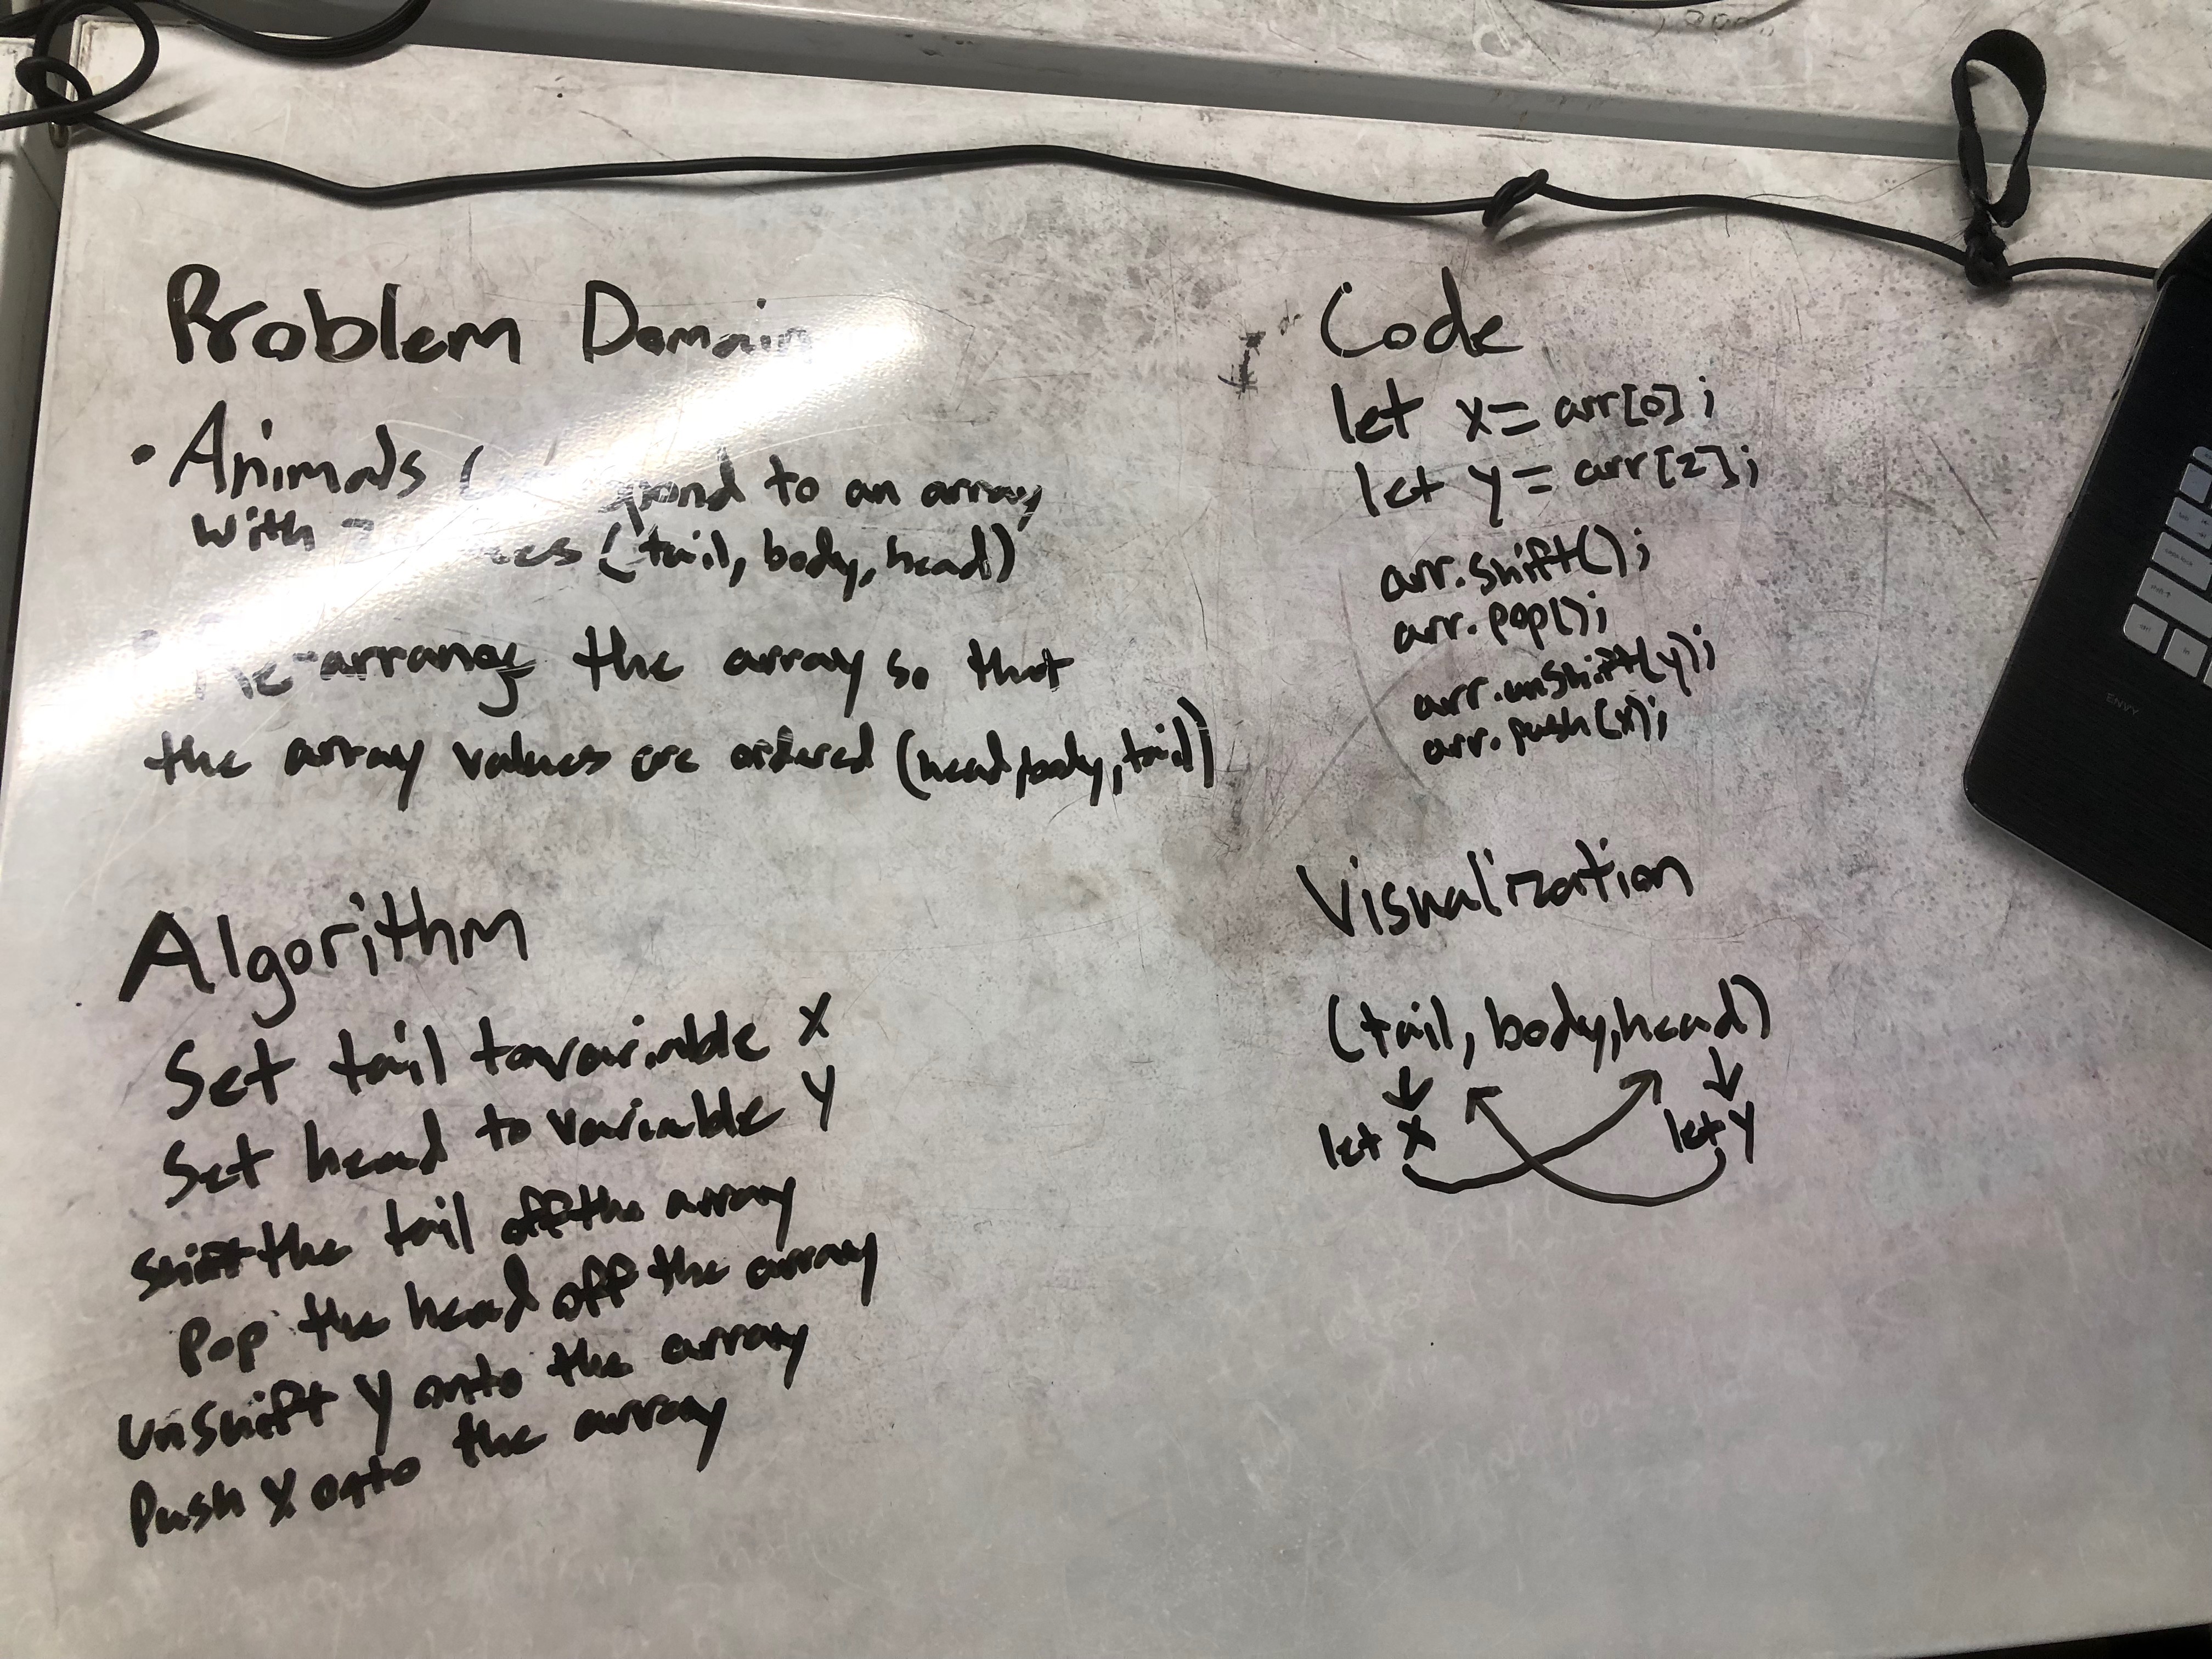 Problem Domain
• Animals pond to an array
with (tail, body, head)
Re-arrange the array so that
the array values are ordered (head, body, tail)
Algorithm
Set tail to variable X
Set head to variable Y
Shift the tail off the array
Pop the head off the array
Unshift Y onto the array
Push X onto the array
Code
let x = arr[0];
let y = arr[2];
arr.shift();
arr.pop();
arr.unshift(y);
arr.push(x);
Visualization
(tail, body, head)
let X let Y
ENVY